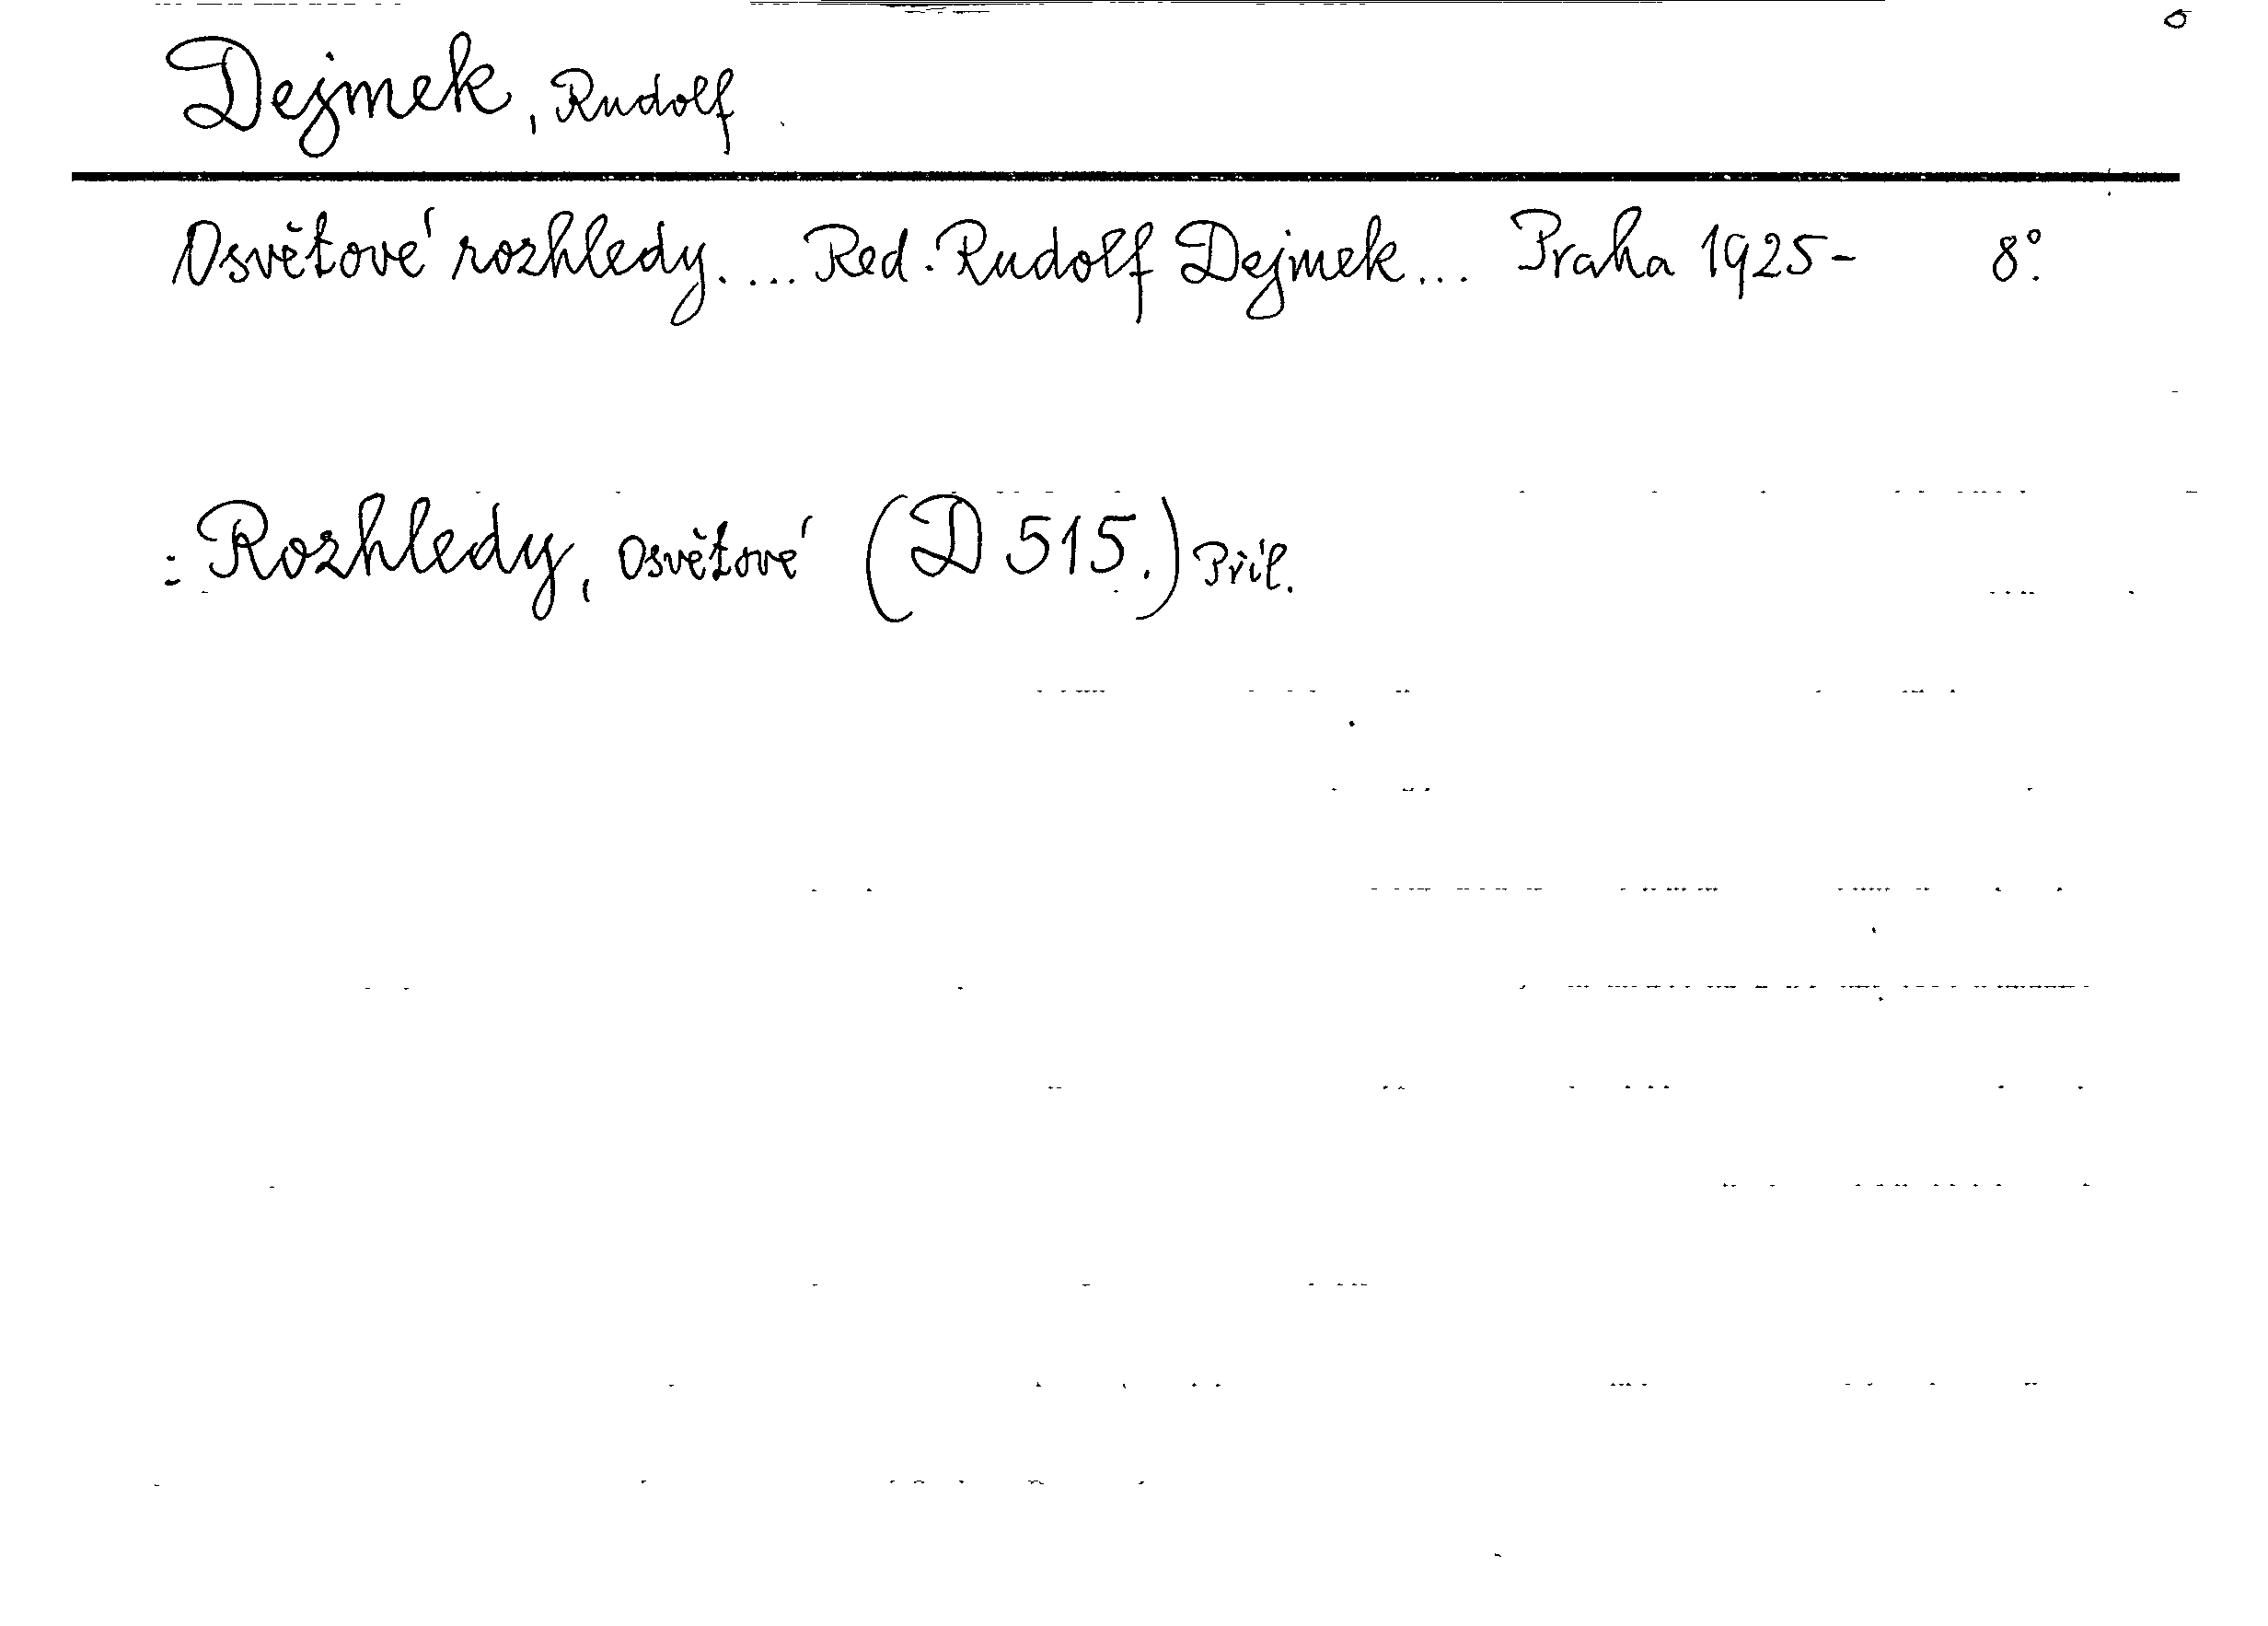 Dejmek, Rudolf
Osvětové rozhledy. ... Red. Rudolf Dejmek ... Praha 1925- 8°.
: Rozhledy, osvětové (D 515.) Příl.